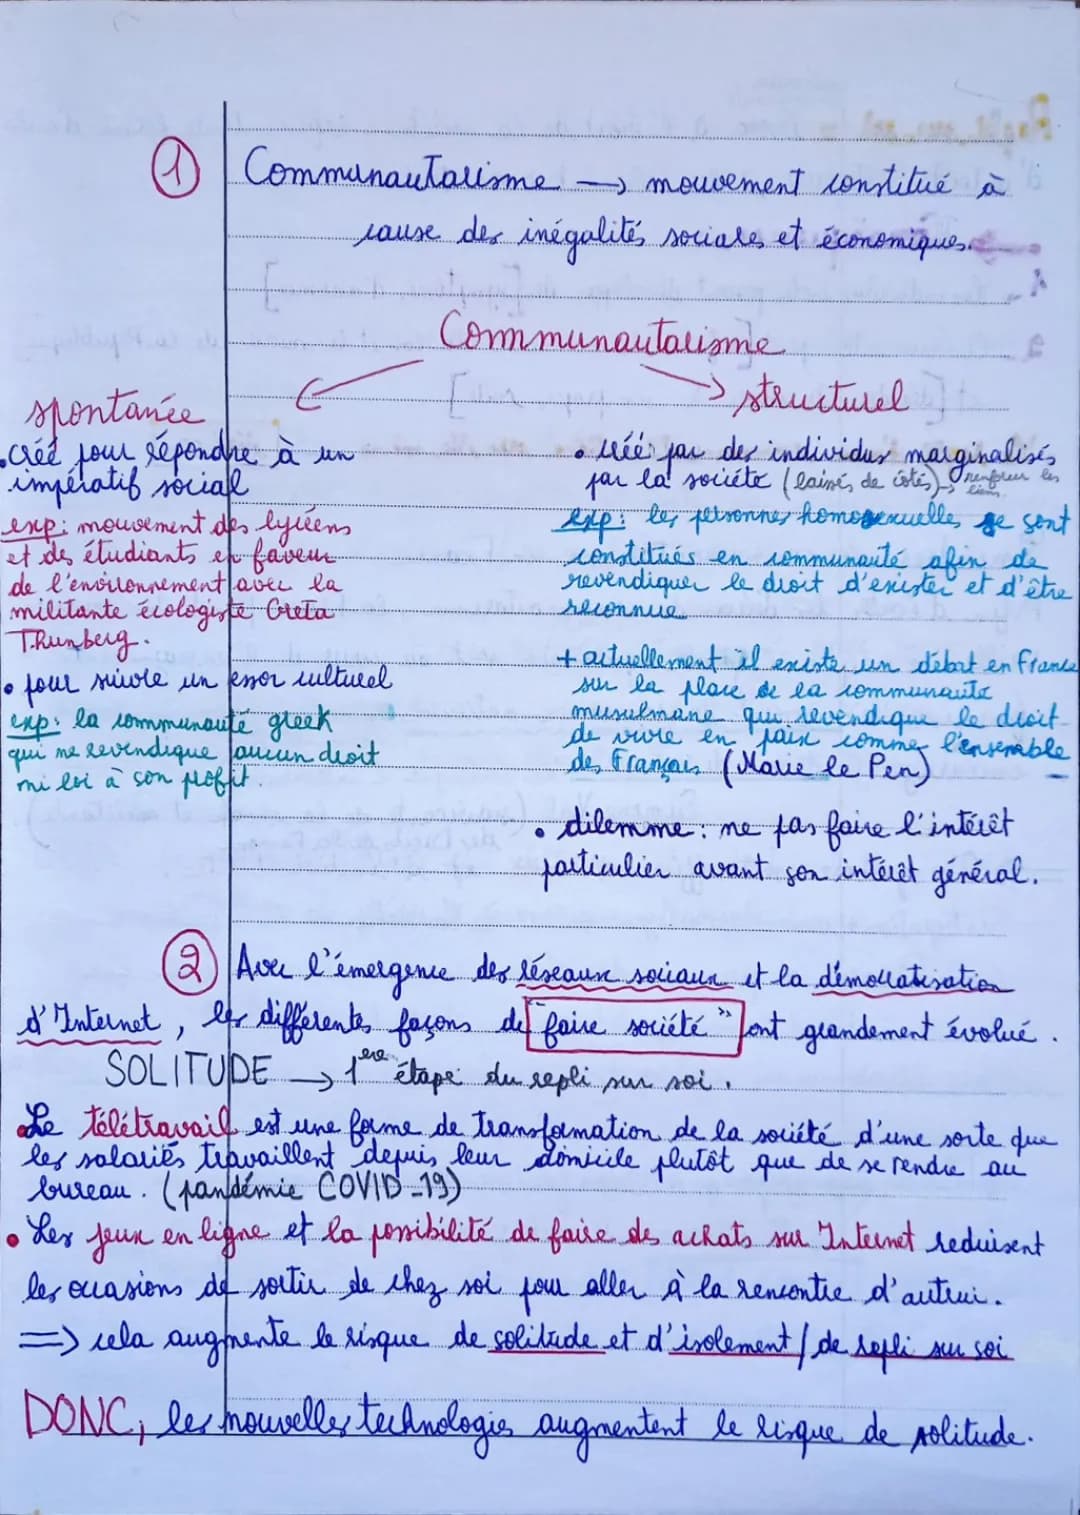 1 Communautarisme → mouvement constitué à
cause des inégalités sociales et économiques.
Communautarisme
spontanée
• créé pour répondre à un
impératif social
exp: mouvement des lycéens
et des étudiants en faveur
de l'environnement avec la
militante écologiste Greta
Thunberg.
• pour suivre un essor culturel
exp: la communauté greek
qui ne revendique aucun droit
ni loi à son profit.
structurel
• créé par des individus marginalisés
par la société (laissés de côtés) → renforcer les
liens.
exp: les personnes homosexuelles se sont
constitués en communauté afin de
revendiquer le droit d'exister et d'être
reconnue
+ actuellement il existe un débat en France
sur la place de la communauté
musulmane qui revendique le droit
de vivre en paix comme l'ensemble
des Français (Marie le Pen)
• dilemme: ne pas faire l'intérêt
particulier avant son intérêt général.
2 Avec l'émergence des réseaux sociaux et la démocratisation
d'Internet, les différentes façons de "faire société" ont grandement évolué.
SOLITUDE → 1ère étape du repli sur soi.
• Le télétravail est une forme de transformation de la société d'une sorte que
les salariés travaillent depuis leur domicile plutôt que de se rendre au
bureau. (pandémie COVID-19)
• Les jeux en ligne et la possibilité de faire des achats sur Internet reduisent
les occasions de sortir de chez soi pour aller à la rencontre d'autrui.
=> cela augmente le risque de solitude et d'isolement / de repli sur soi
DONC, les nouvelles technologies augmentent le risque de solitude.